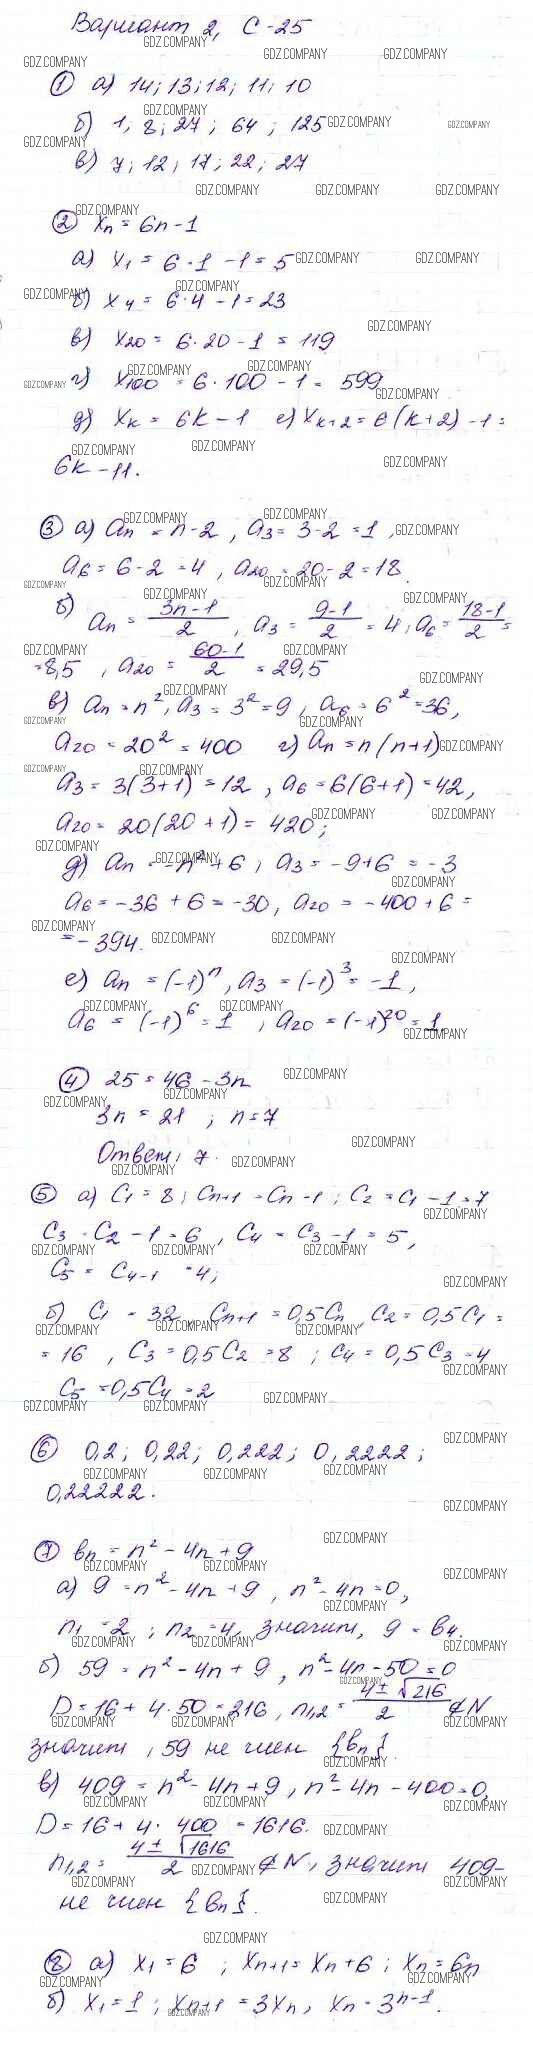 Вариант 2, С-25
① а) 14; 13; 12; 11; 10
б) 1; 8; 27; 64; 125
в) 7; 12; 17; 22; 27
② xₙ = 6n - 1
а) x₁ = 6·1 - 1 = 5
б) x₄ = 6·4 - 1 = 23
в) x₂₀ = 6·20 - 1 = 119
г) x₁₀₀ = 6·100 - 1 = 599
д) xₖ = 6k - 1 е) xₖ₊₂ = 6(k+2) - 1 =
6k - 11.
③ а) aₙ = n - 2, a₃ = 3 - 2 = 1,
a₆ = 6 - 2 = 4, a₂₀ = 20 - 2 = 18.
б) aₙ = (3n-1)/2, a₃ = (9-1)/2 = 4; a₆ = (18-1)/2 =
= 8,5, a₂₀ = (60-1)/2 = 29,5
в) aₙ = n², a₃ = 3² = 9, a₆ = 6² = 36,
a₂₀ = 20² = 400 г) aₙ = n(n+1)
a₃ = 3(3+1) = 12, a₆ = 6(6+1) = 42,
a₂₀ = 20(20+1) = 420;
д) aₙ = -n² + 6, a₃ = -9 + 6 = -3
a₆ = -36 + 6 = -30, a₂₀ = -400 + 6 =
= -394.
е) aₙ = (-1)ⁿ, a₃ = (-1)³ = -1,
a₆ = (-1)⁶ = 1, a₂₀ = (-1)²⁰ = 1
④ 25 = 46 - 3n
3n = 21; n = 7
Ответ: 7.
⑤ а) c₁ = 8; cₙ₊₁ = cₙ - 1; c₂ = c₁ - 1 = 7
c₃ = c₂ - 1 = 6, c₄ = c₃ - 1 = 5,
c₅ = c₄₋₁ = 4;
б) c₁ = 32, cₙ₊₁ = 0,5cₙ, c₂ = 0,5c₁ =
= 16, c₃ = 0,5c₂ = 8; c₄ = 0,5c₃ = 4
c₅ = 0,5c₄ = 2
⑥ 0,2; 0,22; 0,222; 0,2222;
0,22222.
⑦ bₙ = n² - 4n + 9
а) 9 = n² - 4n + 9, n² - 4n = 0,
n₁ = 2; n₂ = 4, значит, 9 = b₄.
б) 59 = n² - 4n + 9, n² - 4n - 50 = 0
D = 16 + 4·50 = 216, n₁,₂ = (4 ± √216)/2 ∉ N
значит, 59 не член {bₙ}.
в) 409 = n² - 4n + 9, n² - 4n - 400 = 0,
D = 16 + 4·400 = 1616.
n₁,₂ = (4 ± √1616)/2 ∉ N, значит 409 -
не член {bₙ}.
⑧ а) x₁ = 6; xₙ₊₁ = xₙ + 6; xₙ = 6n
б) x₁ = 1; xₙ₊₁ = 3xₙ, xₙ = 3ⁿ⁻¹.
GDZ.COMPANY